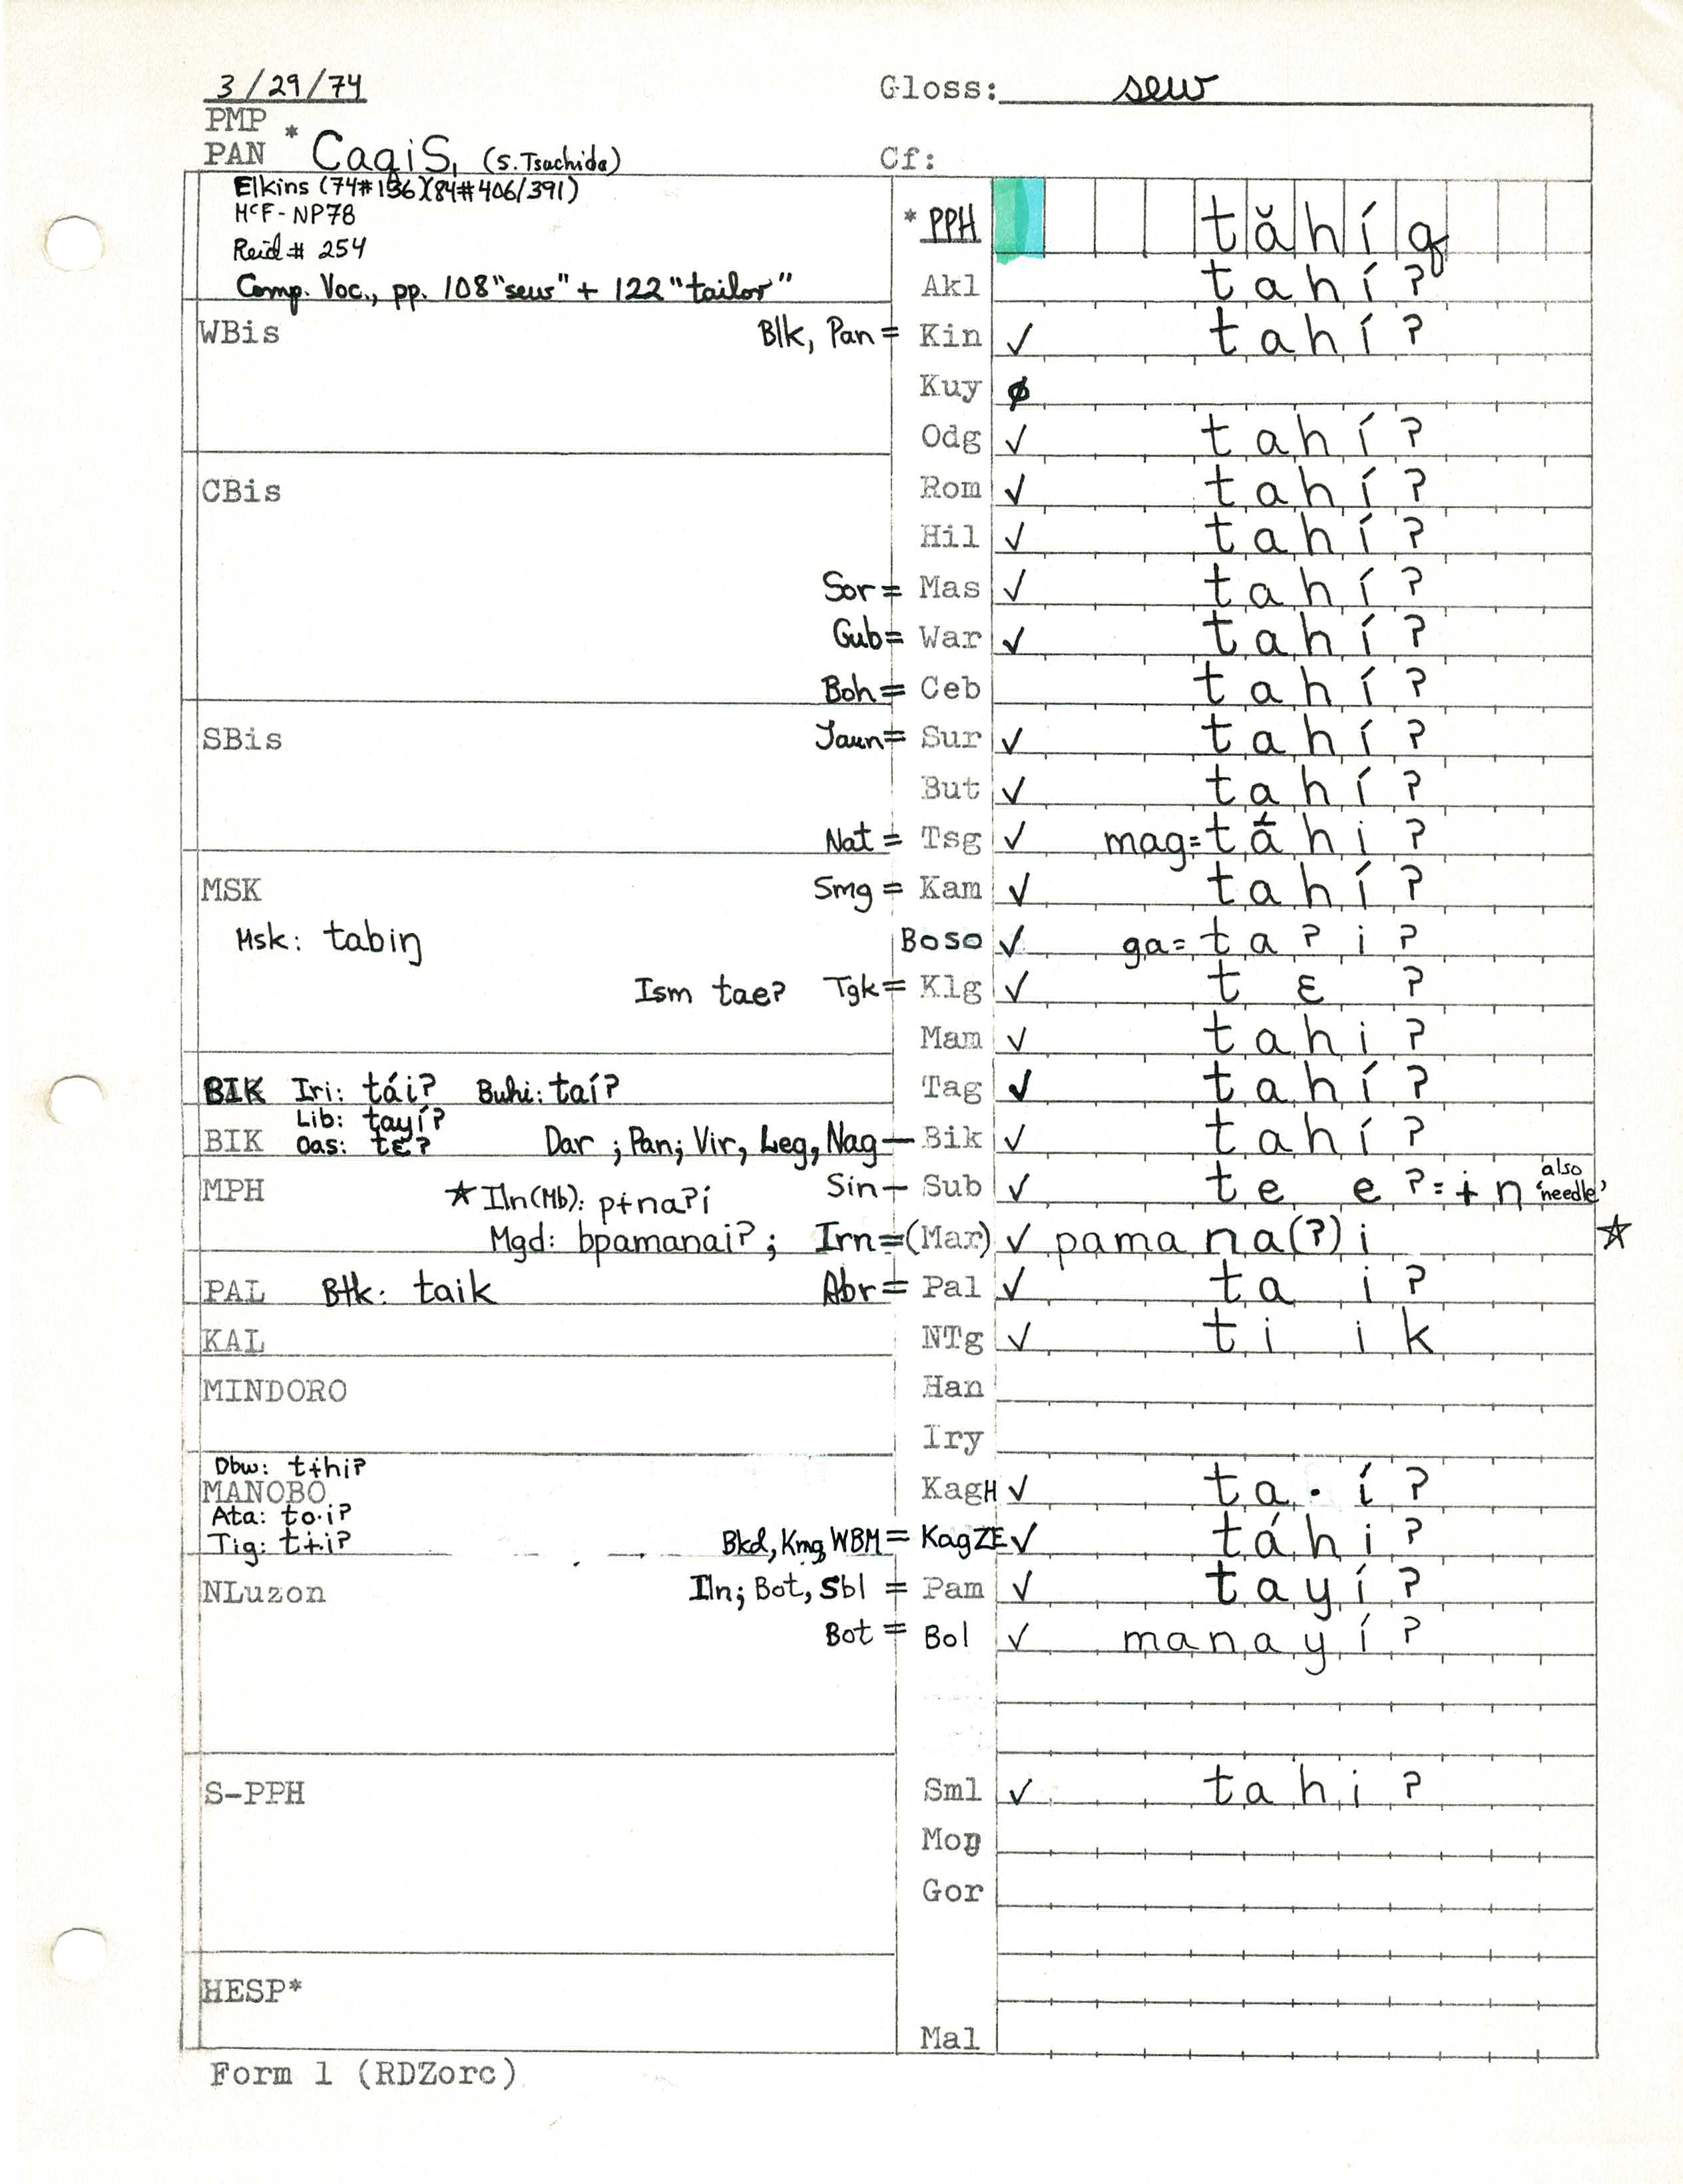 3/29/74 Gloss: sew
PMP
PAN * CaqiS₁ (S. Tsuchida) Cf:
Elkins (74#136)(84#406/391)
McF-NP78
Reid # 254
* PPH tăhíq
Comp. Voc., pp. 108 "sew" + 122 "tailor" Akl tahí?
WBis Blk, Pan = Kin ✓ tahí?
Kuy ∅
Odg ✓ tahí?
CBis Rom ✓ tahí?
Hil ✓ tahí?
Sor = Mas ✓ tahí?
Gub = War ✓ tahí?
Boh = Ceb tahí?
SBis Jaun = Sur ✓ tahí?
But ✓ tahí?
Nat = Tsg ✓ mag=táhi?
MSK Smg = Kam ✓ tahí?
Msk: tabiŋ Boso ✓ ga=ta?i?
Ism tae? Tgk = Klg ✓ tɛ?
Mam ✓ tahi?
BIK Iri: tái? Buhi: taí? Tag ✓ tahí?
Lib: tayí?
BIK Oas: tɛ? Dar ; Pan; Vir, Leg, Nag — Bik ✓ tahí?
MPH ☆ Iln(Mb): pɨna?í Sin — Sub ✓ tee?=ɨn also 'needle'
Mgd: bpamanai? ; Irn = (Mar) ✓ pamana(?)i ☆
PAL Btk: taik Abr = Pal ✓ tai?
KAL NTg ✓ tiik
MINDORO Han
Iry
Dbw: tɨhi?
MANOBO KagH ✓ ta·í?
Ata: to·i?
Tig: tɨi? Bkd, Kmg, WBM = KagZE ✓ táhi?
NLuzon Iln; Bot, Sbl = Pam ✓ tayí?
Bot = Bol ✓ manayí?
S-PPH Sml ✓ tahi?
Moŋ
Gor
HESP*
Mal
Form 1 (RDZorc)